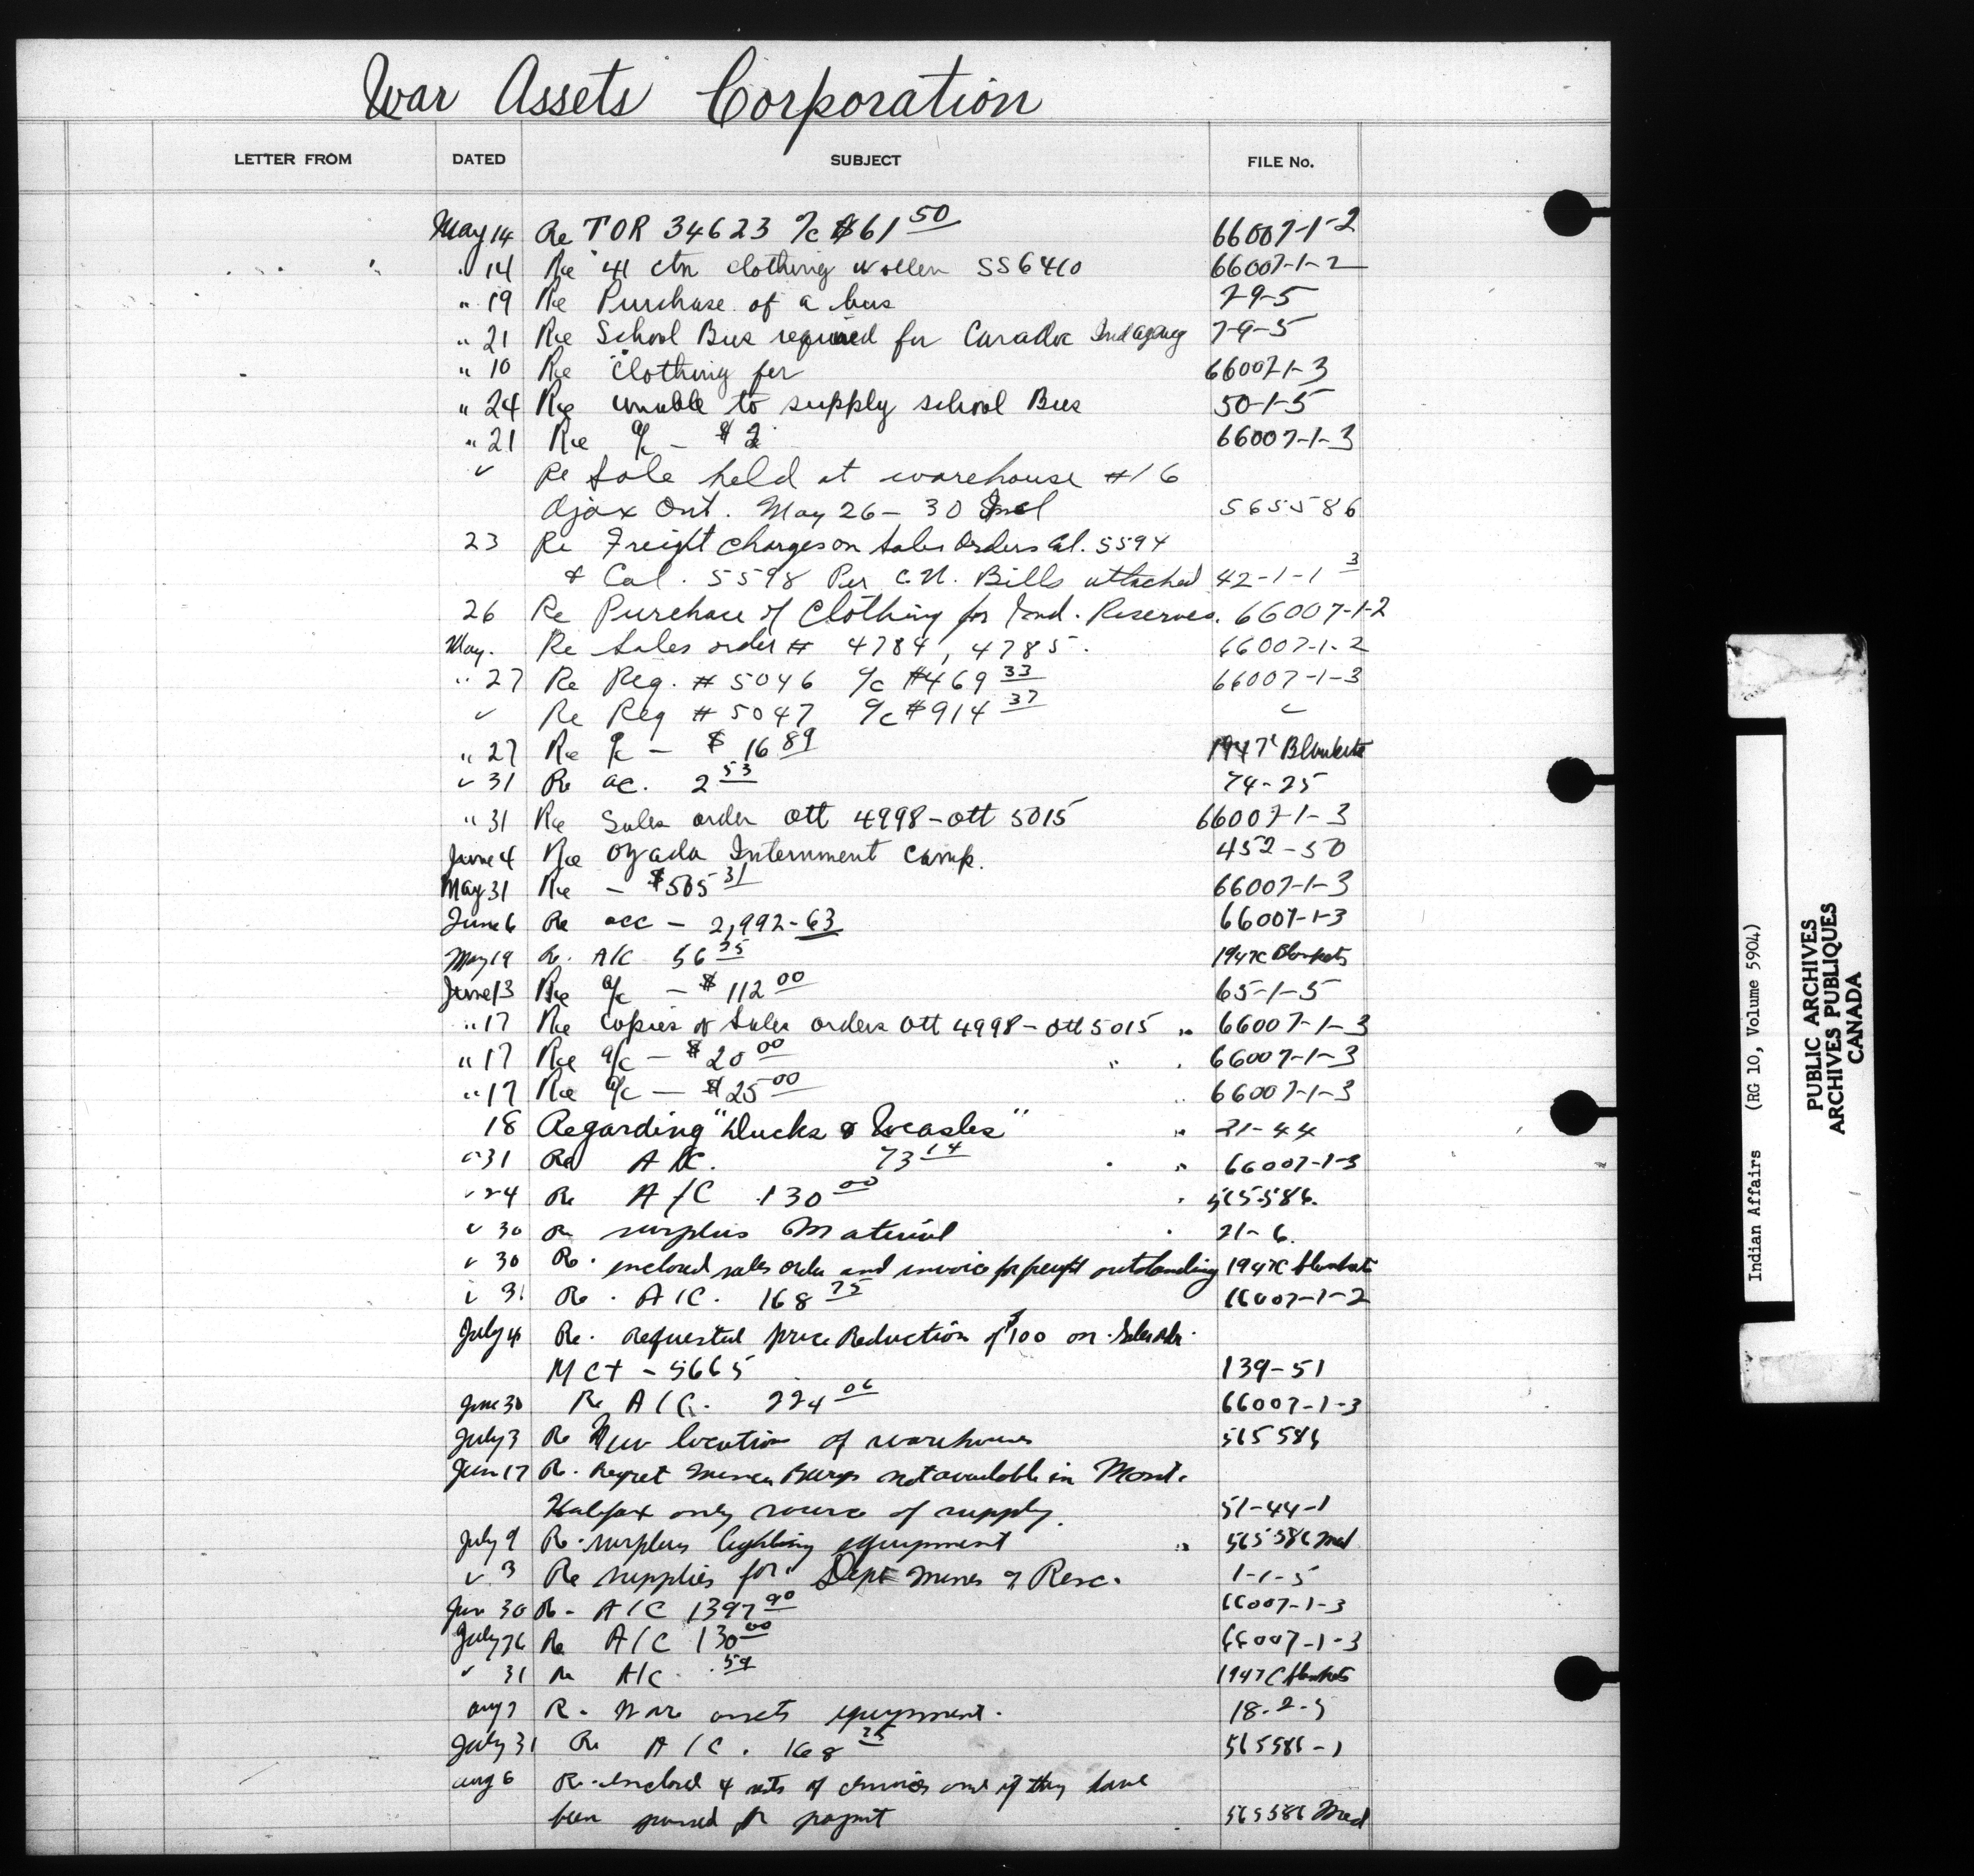 War Assets Corporation
LETTER FROM DATED SUBJECT FILE No.
May 14 Re TOR 34623 a/c $61 50 66007-1-2
" 14 Re 41 ctn clothing wollen SS6410 66007-1-2
" 19 Re Purchase of a bus 29-5
" 21 Re School Bus required for Caradoc Ind agency 7-9-5
" 10 Re Clothing for 66007-1-3
" 24 Re unable to supply school Bus 50-1-5
" 21 Re a/c - $ 2 66007-1-3
✓ Re Sale held at warehouse #16
Ajax Ont. May 26-30 Incl 565586
23 Re Freight charges on Sales Orders Cal. 5594
& Cal. 5598 Per C.N. Bills attached 42-1-1 3
26 Re Purchase of Clothing for Ind. Reserves. 66007-1-2
May. Re Sales order # 4784, 4785. 66007-1-2
" 27 Re Reg. # 5046 a/c $469 33 66007-1-3
✓ Re Reg # 5047 a/c $914 37 ✓
" 27 Re a/c - $ 16 89 1947C Blankets
✓ 31 Re ac. 2 53 74-25
" 31 Re Sales order Ott 4998-Ott 5015 66007-1-3
June 4 Re Ozada Internment Camp. 452-50
May 31 Re - $505 31 66007-1-3
June 6 Re acc - 2,992-63 66007-1-3
May 19 Re. A/C 56 25 1947C Blankets
June 13 Re a/c - $ 112 00 65-1-5
" 17 Re copies of Sales orders Ott 4998-Ott 5015 " 66007-1-3
" 17 Re a/c - $ 20 00 " . 66007-1-3
" 17 Re a/c - $ 25 00 " 66007-1-3
18 Regarding "Ducks & Weasles" " 21-44
" 31 Re A/C. 73 14 . " 66007-1-3
✓ 24 Re A/C 130 00 . 565586.
✓ 30 Re surplus Material . 21-6.
✓ 30 Re. enclosed sales order and invoice for freight outstanding 1947C blankets
31 Re. A/C. 168 75 66007-1-2
July 4 Re. Requested price Reduction of $100 on. Sales Order.
MCT - 5665 139-51
June 30 Re A/C. 224 06 66007-1-3
July 3 Re New location of warehouses 565586
Jun 17 Re. Regret Barges not available in Mont.
Halifax only source of supply. 51-44-1
July 9 Re. surplus lighting equipment " 565586 Med
✓ 3 Re supplies for. Dept Mines & Resc. 1-1-5
Jun 30 Re - A/C 1397 90 66007-1-3
July 26 Re A/C 130 00 66007-1-3
✓ 31 Re A/C. .59 1947C blankets
Aug 7 Re. War assets equipment. 18-2-5
July 31 Re A/C. 168 75 565586-1
Aug 6 Re. enclosed 4 sets of invoices and if they have
been passed for paymt 565586 Med
Indian Affairs (RG 10, Volume 5904)
PUBLIC ARCHIVES
ARCHIVES PUBLIQUES
CANADA